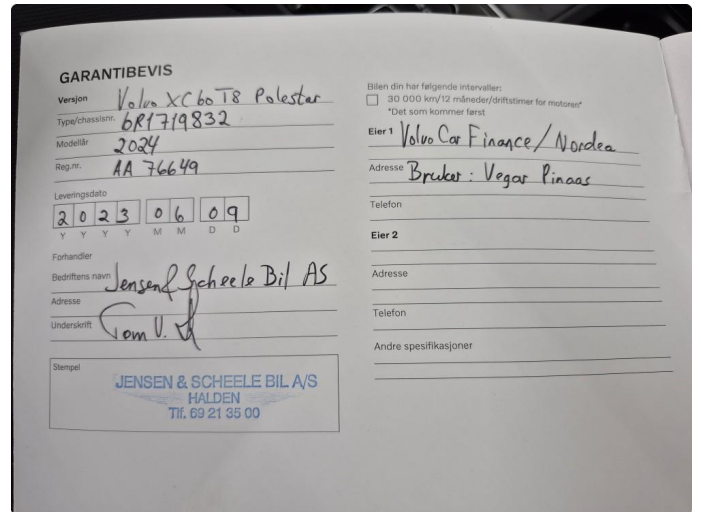 GARANTIBEVIS
Versjon Volvo XC60 T8 Polestar
Type/chassisnr. 6R1719832
Modellår 2024
Reg.nr. AA 76649
Leveringsdato
2 0 2 3 0 6 0 9
Y Y Y Y M M D D
Forhandler
Bedriftens navn Jensen & Scheele Bil AS
Adresse
Underskrift Tom V.
Stempel
JENSEN & SCHEELE BIL A/S
HALDEN
Tlf. 69 21 35 00
Bilen din har følgende intervaller:
30 000 km/12 måneder/driftstimer for motoren*
*Det som kommer først
Eier 1 Volvo Car Finance / Nordea
Adresse Bruker: Vegar Pinaas
Telefon
Eier 2
Adresse
Telefon
Andre spesifikasjoner